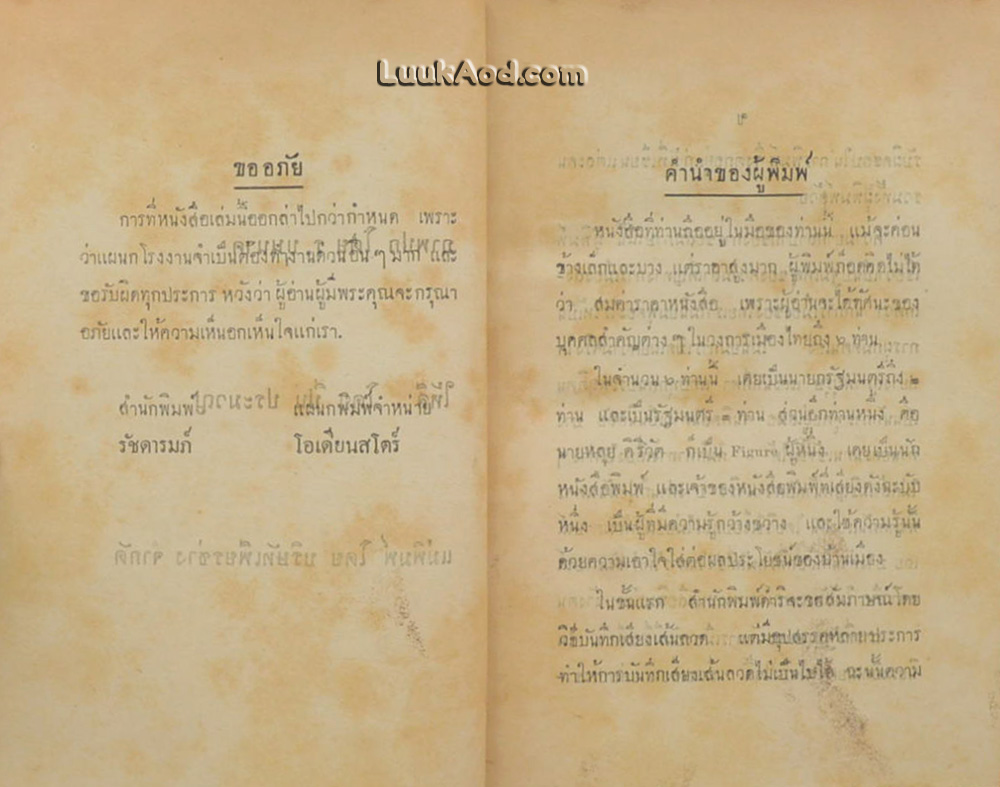 LuukAod.com
ขออภัย
การที่หนังสือเล่มนี้ออกล่าไปกว่ากำหนด เพราะ
ว่าแผนกโรงงานจำเป็นต้องทำงานด่วนอื่น ๆ มาก และ
ขอรับผิดทุกประการ หวังว่า ผู้อ่านผู้มีพระคุณจะกรุณา
อภัยและให้ความเห็นอกเห็นใจแก่เรา.
สำนักพิมพ์ แผนกพิมพ์จำหน่าย
รัชดารมภ์ โอเดียนสโตร์
แม่พิมพ์ โดย บริษัทเพียรช่าง จำกัด
คำนำของผู้พิมพ์
หนังสือที่ท่านถืออยู่ในมือของท่านนี้ แม้จะค่อน
ข้างเล็กและบาง แต่ราคาสูงมาก ผู้พิมพ์ก็อดคิดไม่ได้
ว่า สมค่าราคาหนังสือ เพราะผู้อ่านจะได้ทัศนะของ
บุคคลสำคัญต่าง ๆ ในวงการเมืองไทยถึง ๖ ท่าน
ในจำนวน ๖ ท่านนี้ เคยเป็นนายกรัฐมนตรีถึง
ท่าน และเป็นรัฐมนตรี ท่าน ส่วนอีกท่านหนึ่ง คือ
นายหลุย คีรีวัต ก็เป็น Figure ผู้หนึ่ง เคยเป็นนัก
หนังสือพิมพ์ และเจ้าของหนังสือพิมพ์ที่เสียงดังฉะบับ
หนึ่ง เป็นผู้ที่มีความรู้กว้างขวาง และใช้ความรู้นั้น
ด้วยความเอาใจใส่ต่อผลประโยชน์ของบ้านเมือง
ในชั้นแรก สำนักพิมพ์ดำริจะขอสัมภาษณ์โดย
วิธีบันทึกเสียงเส้นลวด แต่มีอุปสรรคหลายประการ
ทำให้การบันทึกเสียงเส้นลวดไม่เป็นไปได้ ฉะนั้นความ